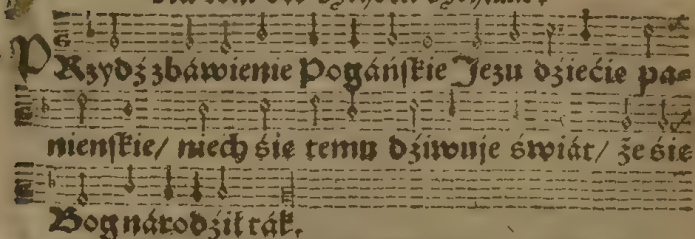 PRzydź zbáwienie Pogáńſkie Jezu dźiećię pa⸗
nienſkie/ niech śię temu dźiwuje świát/ że śię
Bog národźił ták.